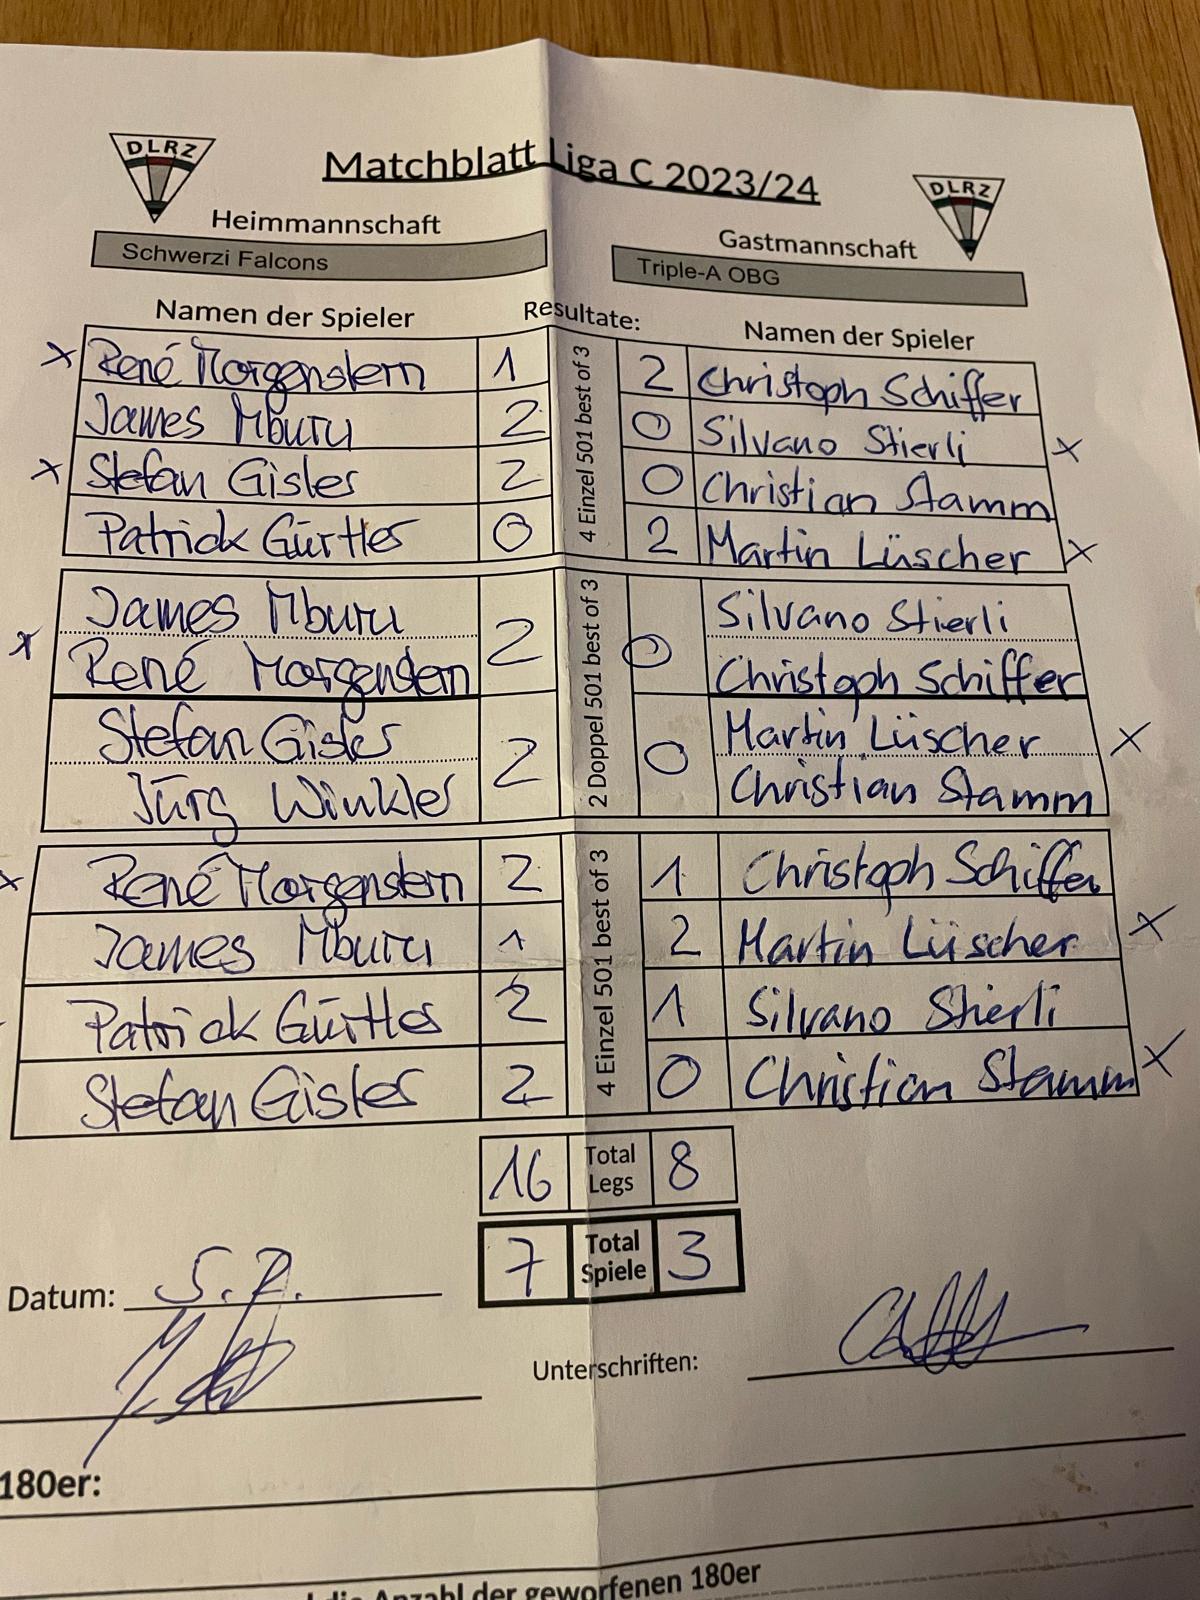 DLRZ Matchblatt Liga C 2023/24 DLRZ
Heimmannschaft Gastmannschaft
Schwerzi Falcons Triple-A OBG
Namen der Spieler Resultate: Namen der Spieler
4 Einzel 501 best of 3
x René Morgenstern 1 2 Christoph Schiffer
James Mburu 2 0 Silvano Stierli x
x Stefan Gisler 2 0 Christian Stamm
Patrick Gürtler 0 2 Martin Lüscher x
2 Doppel 501 best of 3
James Mburu Silvano Stierli
x 2 0
René Morgenstern Christoph Schiffer
Stefan Gisler Martin Lüscher x
2 0
Jürg Winkler Christian Stamm
4 Einzel 501 best of 3
x René Morgenstern 2 1 Christoph Schiffer
James Mburu 1 2 Martin Lüscher x
Patrick Gürtler 2 1 Silvano Stierli
Stefan Gisler 2 0 Christian Stamm x
16 Total Legs 8
7 Total Spiele 3
Datum: 5.2.
Unterschriften:
180er:
die Anzahl der geworfenen 180er